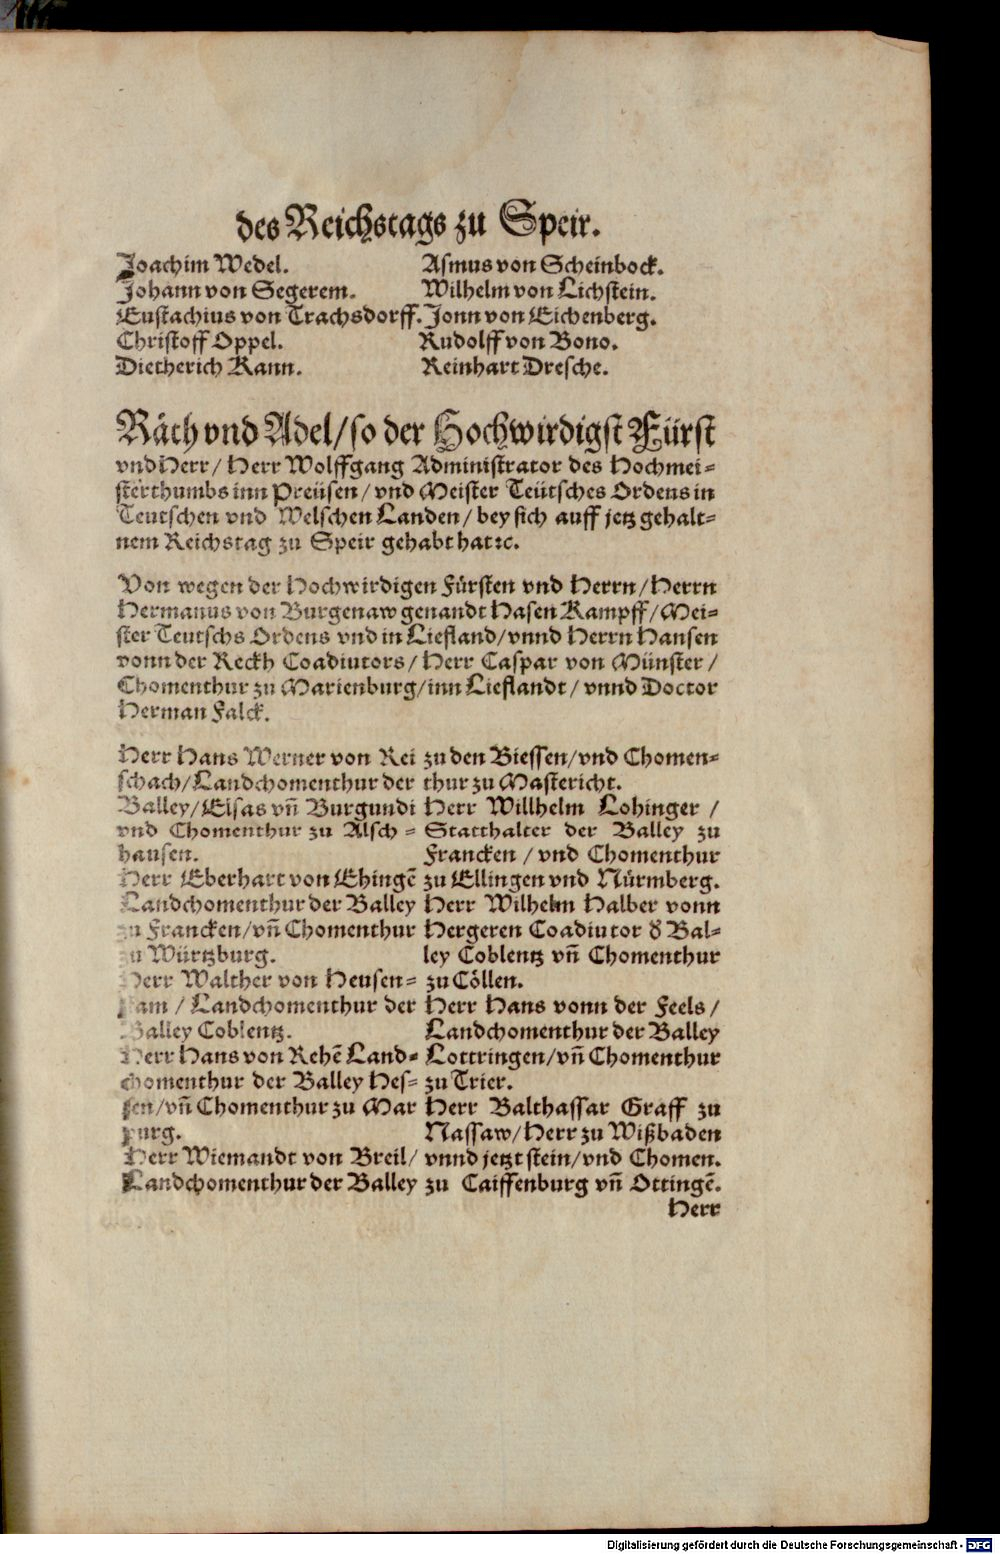 des Reichstags zu Speir.
Joachim Wedel.
Johann von Segerem.
Eustachius von Trachsdorff.
Christoff Oppel.
Dietherich Rann.
Asmus von Scheinbock.
Wilhelm von Lichstein.
Jonn von Eichenberg.
Rudolff von Bono.
Reinhart Dresche.
Räth vnd Adel/ so der Hochwirdigst Fürst
vnd Herr/ Herr Wolffgang Administrator des Hochmei-
sterthumbs inn Preüsen/ vnd Meister Teütsches Ordens in
Teutschen vnd Welschen Landen/ bey sich auff jetz gehalt-
nem Reichstag zu Speir gehabt hat ꝛc.
Von wegen der Hochwirdigen Fürsten vnd Herrn/ Herrn
Hermanus von Burgenaw genandt Hasen Kampff/ Mei-
ster Teutschs Ordens vnd in Liefland/ vnnd Herrn Hansen
vonn der Reckh Coadiutors/ Herr Caspar von Münster/
Chomenthur zu Marienburg/ inn Lieflandt/ vnnd Doctor
Herman Falck.
Herr Hans Werner von Rei
schach/ Landchomenthur der
Balley/ Elsas vñ Burgundi
vnd Chomenthur zu Alsch-
hausen.
Herr Eberhart von Ehingē
Landchomenthur der Balley
zu Francken/ vñ Chomenthur
zu Würtzburg.
Herr Walther von Heusen-
stam/ Landchomenthur der
Balley Coblentz.
Herr Hans von Rehē Land-
chomenthur der Balley Hes-
sen/ vñ Chomenthur zu Mar
purg.
Herr Wiemandt von Breil/
Landchomenthur der Balley
zu den Biessen/ vnd Chomen-
thur zu Mastericht.
Herr Willhelm Lohinger/
Statthalter der Balley zu
Francken/ vnd Chomenthur
zu Ellingen vnd Nürmberg.
Herr Wilhelm Halber vonn
Hergeren Coadiutor đ Bal-
ley Coblentz vñ Chomenthur
zu Cöllen.
Herr Hans vonn der Feels/
Landchomenthur der Balley
Lottringen/ vñ Chomenthur
zu Trier.
Herr Balthassar Graff zu
Nassaw/ Herr zu Wißbaden
vnnd jetzt stein/ vnd Chomen.
zu Caiffenburg vñ Ottingē.
Herr
Digitalisierung gefördert durch die Deutsche Forschungsgemeinschaft - DFG